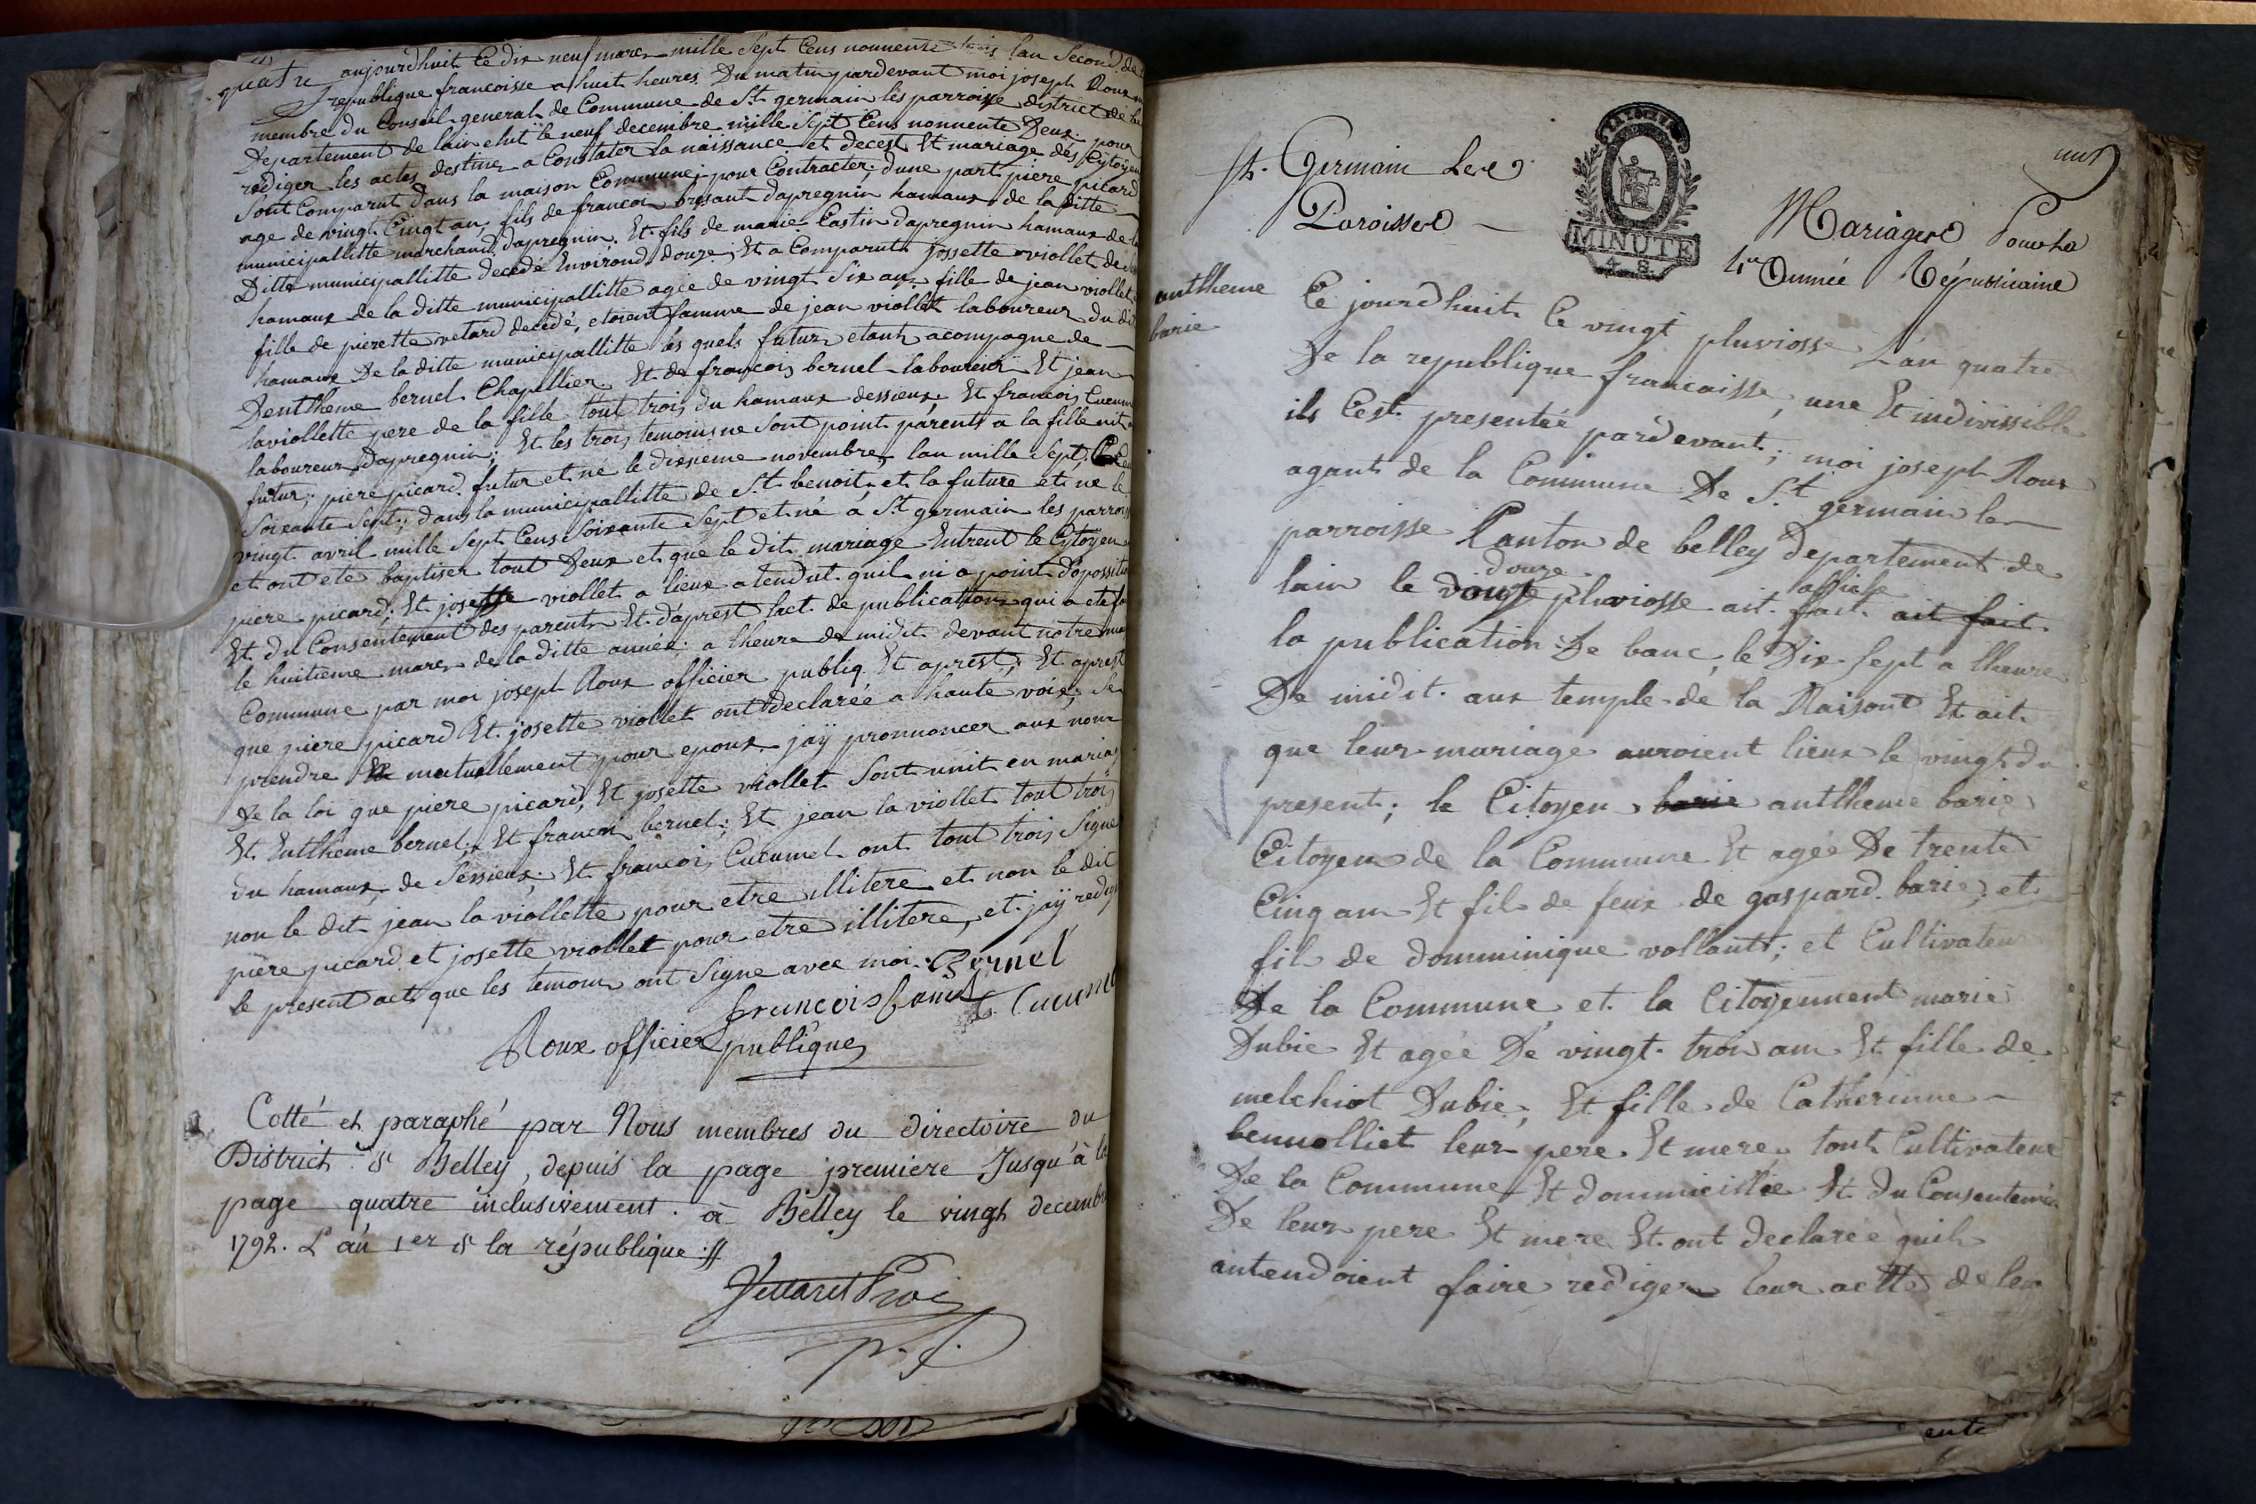 quatre
aujourdhuit Ce dix neuf mars mille Sept Cens nonnente trois lan Second de
republique francoisse a huit heures Du matin pardevant moi joseph Roux
membre du Conseil general de Commune de St germain les parroisse district de
Departement de lain elut le neuf decembre mille Sept Cens nonnente Deux pour
rediger les actes destine a Constater la naissance et decest Et mariage des Cytoyen
Sont Comparut Dans la maison Commune pour Contracter dune part piere picard
age de vingt Cingt an fils de francoi bresant dapregnin hamaux de la ditte
municipallitte marchand dapregnin Et fils de marie Castin dapregnin hamaux de la
Ditte municipallitte decedé Environd douze Et a Comparut Jossette viollet de
hamaux de la ditte municipallitte agée de vingt Six an fille de jean viollet
fille de pierette vetard decedé, etoiant famme de jean viollet laboureur du dit
hamaux De la ditte municipallitte les quels futur etant acompagne de
Dentheme bernel Chapellier Et de francois bernel laboureur Et jean
laviollette pere de la fille tout trois du hamaux dessieux Et francois Cucumel
laboureur dapregnin; Et les trois temoins ne Sont point parents a la fille nit
futur; piere picard futur et né le dixieme novembre lan mille Sept Cens
Soixante Sept; dans la municipallitte de St benoit et la future et ne le
vingt avril mille Sept Cens Soixante Sept et né à St germain les parroisse
et ont ete baptiser tout Deux et que le dit mariage Entrent le Cytoyen
piere picard Et josette viollet a lieux atendut quil ni a point doppossition
Et du Consentement des parents Et daprest lact de publication qui a ete fait
le huitieme mars de la ditte année a lheure de midit devant notre maison
Commune par moi joseph Roux officier publiq Et aprest; Et aprest
que piere picard Et josette viollet ont declarée a haute voix, Se
prendre mutuellement pour epoux jaÿ pronnoncer aux nom
de la loi que piere picard, Et josette viollet Sont unit en mariage
Et Entheme bernel Et francoi bernel; Et jean la viollet tout trois
du hamaux de Sessieux; Et francois Cucumel ont tout trois Signe
non le dit jean la viollette pour etre illitere et non le dit
piere picard et josette viollet pour etre illitere, et jaÿ redige
le present act que les temoin ont Signe avec moi Bernel
francois bernel Cucumel
Roux officier publique
Cotté et paraphé par Nous membres du directoire du
District de Belley, depuis la page premiere Jusqu'à la
page quatre inclusivement. à Belley le vingt decembre
1792. L'an 1er de la république
p. f.
St. Germain Les
Paroisse
MINUTE
4 S.
Mariages Pour la
4e Année Républicaine
anttheme
barie
Ce jourdhuit le vingt pluviosse Lan quatre
De la republique francaisse, une Et indivissible
ils Cest presentée pardevant; moi joseph Roux
agant de la Commune De St germain les
parroisse Canton de belley Departement de
douze affiche
lain le douze pluviosse ait fait ait fait
la publication De banc, le Dix Sept a lheure
De midit aux temple de la Raisont Et ait
que leur mariage auroient lieux le vingt du
present; le Citoyen barie anttheme barie
Citoyen de la Commune Et agée De trente
Cinq an Et fils de feux de gaspard barie; et
fils de domminique vollant; et Cultivateur
De la Commune et la Citoyennent marie
Dubie Et agée De vingt trois an Et fille de
melchiot Dubie; Et fille de Catherinne
bennolliet leur pere Et mere tout Cultivateur
De la Commune Et dommicillie Et du Consentemen
De leur pere Et mere Et ont declarée quils
antendoient faire rediger leur actte de leur